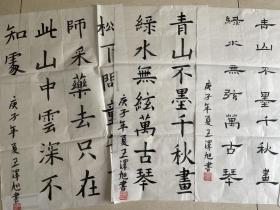 青山不墨千秋畫
綠水無弦萬古琴
庚子年夏王澤旭書
青山不墨千秋畫
綠水無絃萬古琴
庚子年夏王澤旭書
松下問童
師采藥去只在
此山中雲深不
知處
庚子年夏王澤旭書